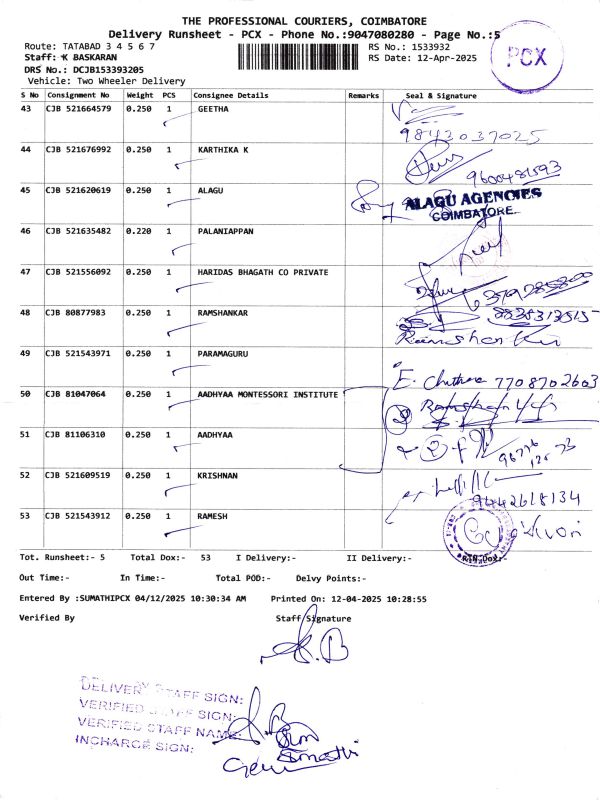 THE PROFESSIONAL COURIERS, COIMBATORE
Delivery Runsheet - PCX - Phone No.:9047080280 - Page No.:5
PCX
Route: TATABAD 3 4 5 6 7
RS No.: 1533932
Staff: K BASKARAN
RS Date: 12-Apr-2025
DRS No.: DCJB153393205
Vehicle: Two Wheeler Delivery
S No Consignment No Weight PCS Consignee Details Remarks Seal & Signature
43 CJB 521664579 0.250 1 GEETHA
9843037025
44 CJB 521676992 0.250 1 KARTHIKA K
9600481593
45 CJB 521620619 0.250 1 ALAGU
ALAGU AGENCIES
COIMBATORE.
46 CJB 521635482 0.220 1 PALANIAPPAN
47 CJB 521556092 0.250 1 HARIDAS BHAGATH CO PRIVATE
48 CJB 80877983 0.250 1 RAMSHANKAR
49 CJB 521543971 0.250 1 PARAMAGURU
E. Chithra 7708702603
50 CJB 81047064 0.250 1 AADHYAA MONTESSORI INSTITUTE
51 CJB 81106310 0.250 1 AADHYAA
52 CJB 521609519 0.250 1 KRISHNAN
9442618134
53 CJB 521543912 0.250 1 RAMESH
Tot. Runsheet:- 5 Total Dox:- 53 I Delivery:- II Delivery:-
Out Time:- In Time:- Total POD:- Delvy Points:-
Entered By :SUMATHIPCX 04/12/2025 10:30:34 AM Printed On: 12-04-2025 10:28:55
Verified By Staff Signature
DELIVERY STAFF SIGN:
VERIFIED STAFF SIGN:
VERIFIED STAFF NAME:
Sumathi
INCHARGE SIGN: